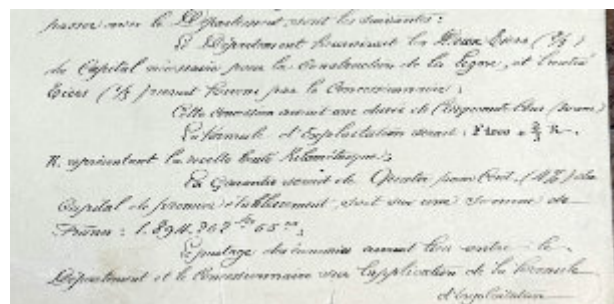 passer avec le Département, sont les suivantes :
Le Département fournirait les Deux Tiers (2/3)
du Capital nécessaire pour la Construction de la ligne, et l'autre
Tiers (1/3) serait fourni par le Concessionnaire ;
Cette Concession aurait une durée de Cinquante Ans
La formule d'Exploitation serait : F = + 2/3 R.
R. représentant la recette brute Kilométrique ;
La Garantie serait de Quatre pour Cent (4%) du
Capital de premier établissement, soit sur une somme de
Francs : 1.894.767 frs 65 cs ;
Le partage des bénéfices aurait lieu entre le
Département et le Concessionnaire sur l'application de la formule
d'Exploitation